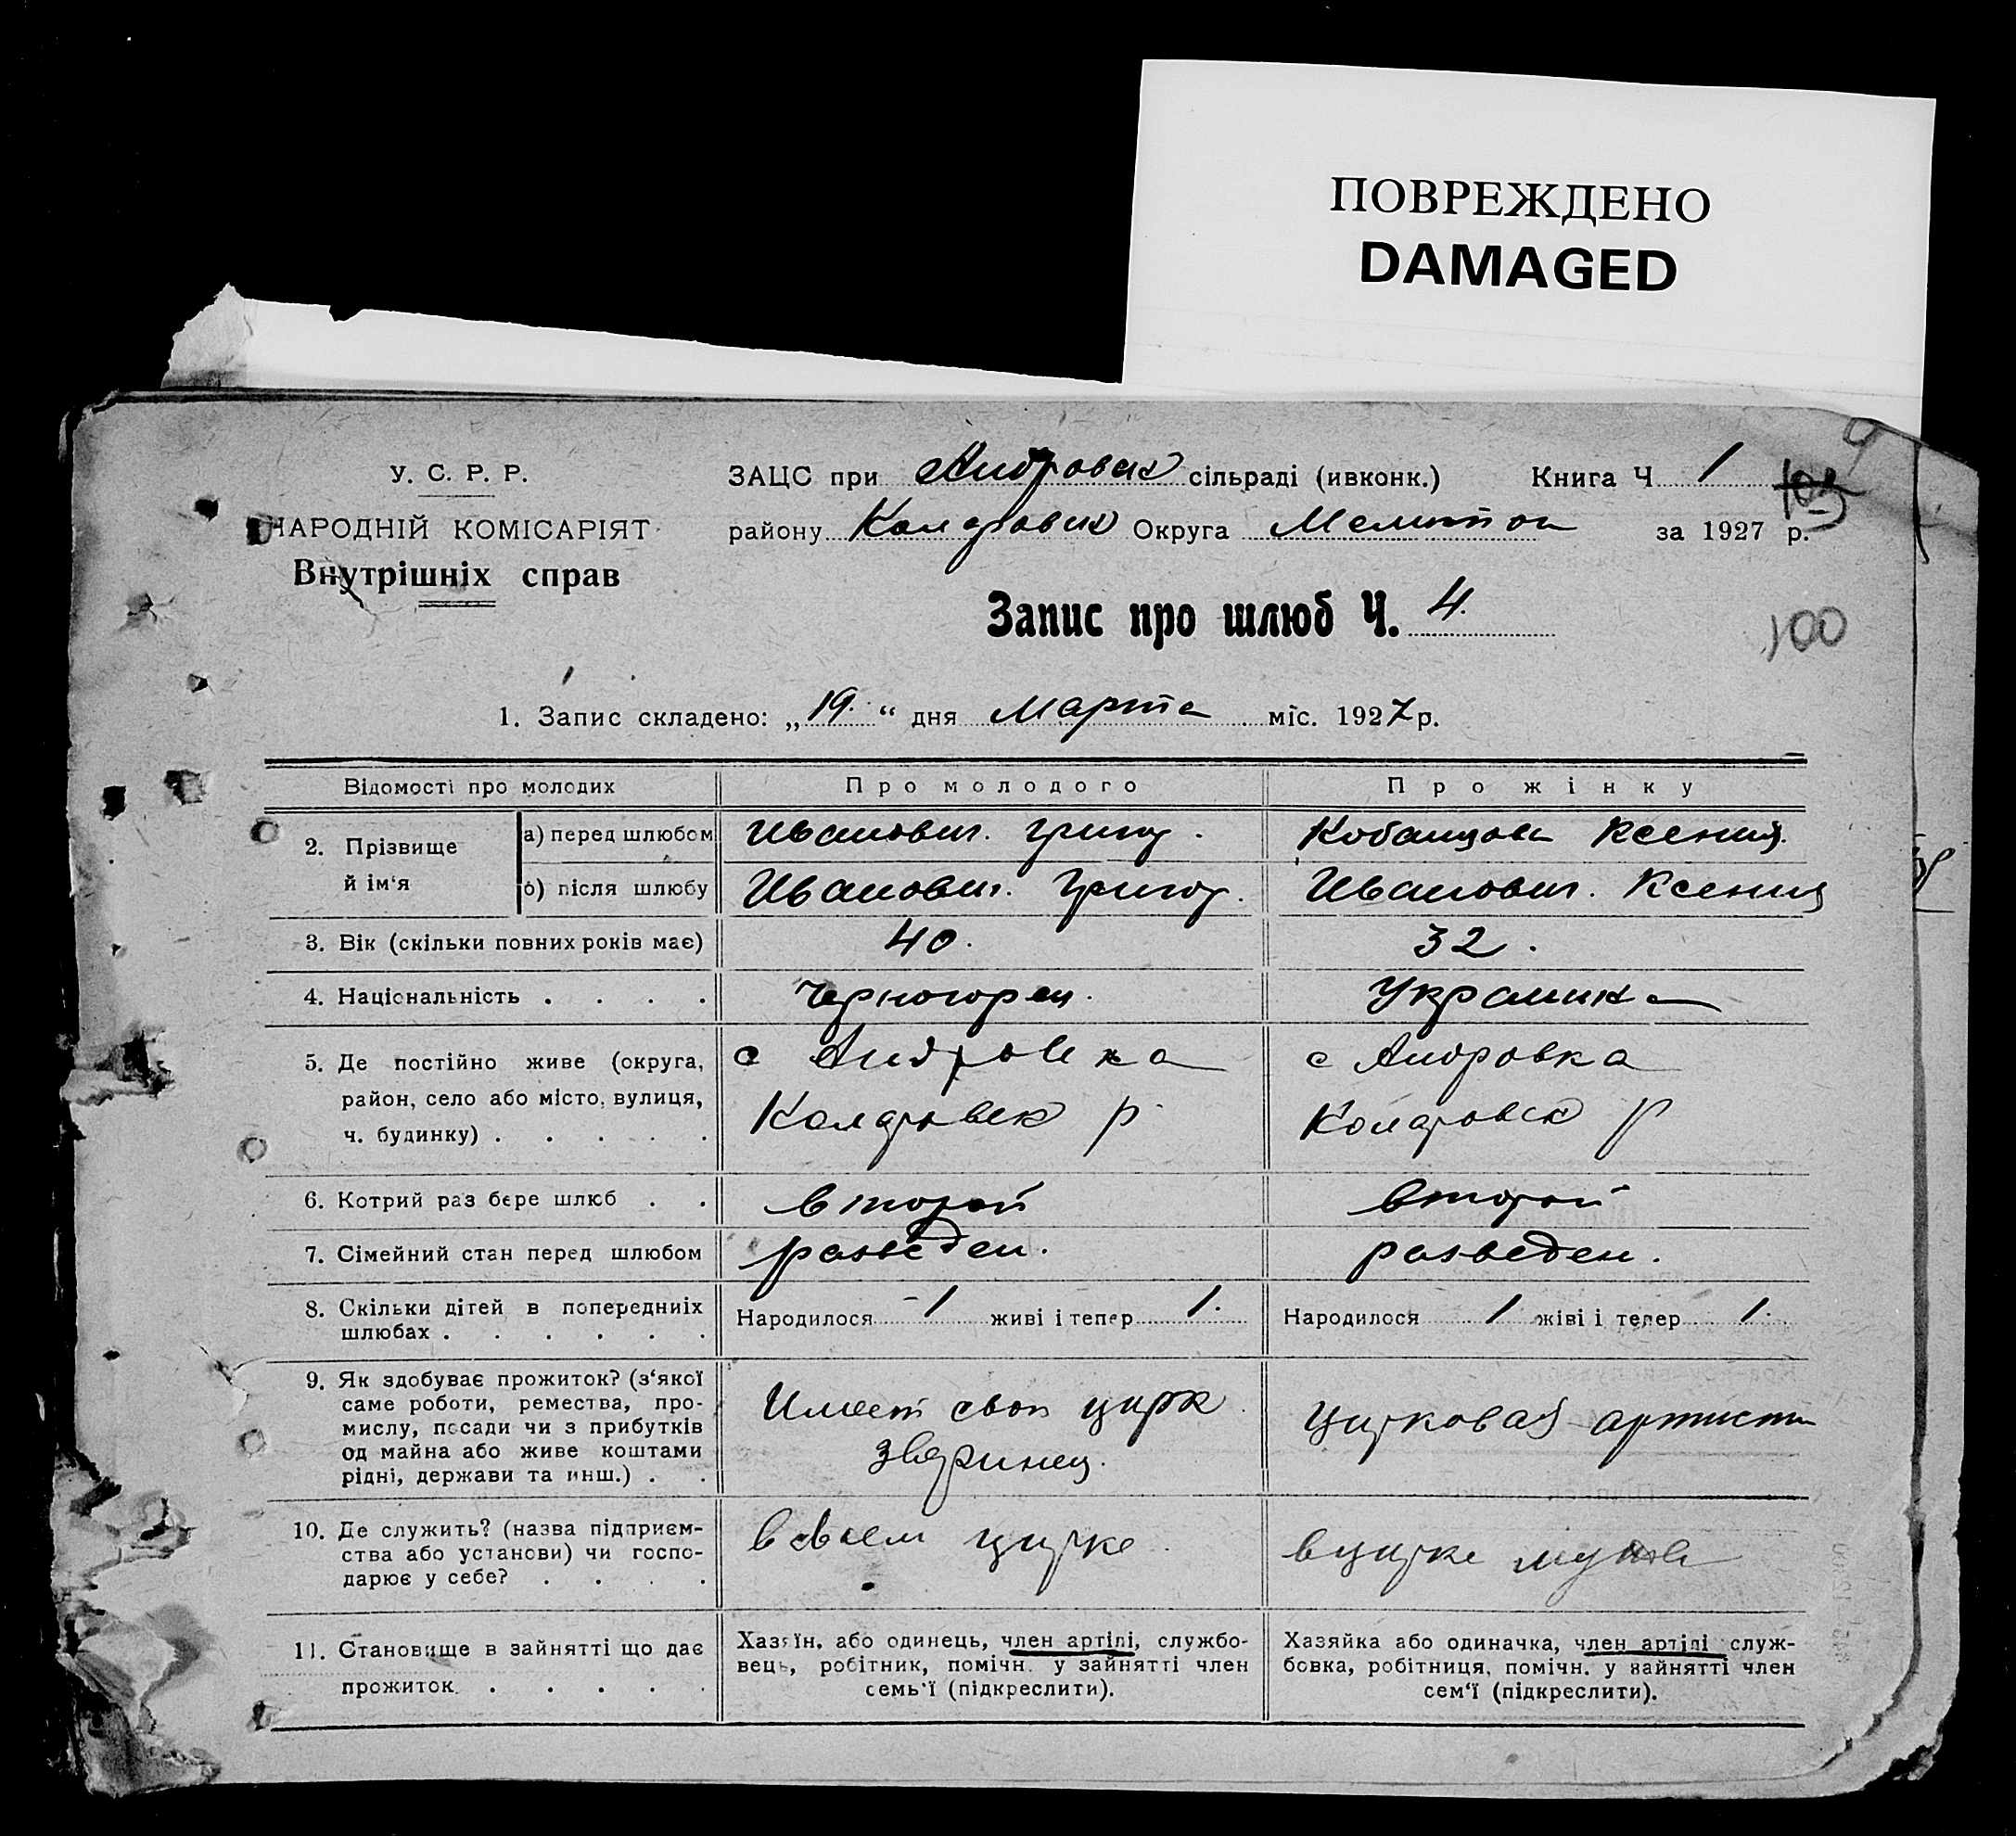 ПОВРЕЖДЕНО
DAMAGED
У. С. Р. Р.
НАРОДНІЙ КОМІСАРІЯТ
Внутрішніх справ
ЗАЦС при Андровск сільраді (ивконк.) Книга Ч 1
району Округа Мелитоп за 1927 р.
Запис про шлюб Ч. 4.
100
1. Запис складено: „19.“ дня Марта міс. 1927 р.
Відомості про молодих Про молодого Про жінку
2. Прізвище й ім‘я
а) перед шлюбом Иванович. Григор. Кобанцова Ксения.
б) після шлюбу Иванович. Григор. Иванович. Ксения
3. Вік (скільки повних років має) 40. 32.
4. Національність . . . . Черногорец. Украинка
5. Де постійно живе (округа, с Андровка с Андровка
район, село або місто, вулиця, р. р
ч. будинку) . . . . .
6. Котрий раз бере шлюб . . второй второй
7. Сімейний стан перед шлюбом разведен. разведен.
8. Скільки дітей в попередниіх Народилося 1 живі і тепер 1. Народилося 1 жіві і тепер 1.
шлюбах . . . . . .
9. Як здобуває прожиток? (з‘якої
саме роботи, ремества, про- Имеет свой цирк цирковая артистк
мислу, посади чи з прибутків зверинец.
од майна або живе коштами
рідні, держави та инш.) . .
10. Де служить? (назва підприєм- в своем цирке. в цирке мужа
ства або установи) чи госпо-
дарює у себе? . . . .
11. Становище в зайнятті що дає Хазяїн, або одинець, член артілі, службо- Хазяйка або одиначка, член артілі служ-
прожиток. . . . . . вець, робітник, помічн. у зайнятті член бовка, робітниця, помічн. у зайнятті член
семь‘ї (підкреслити). сем‘ї (підкреслити).